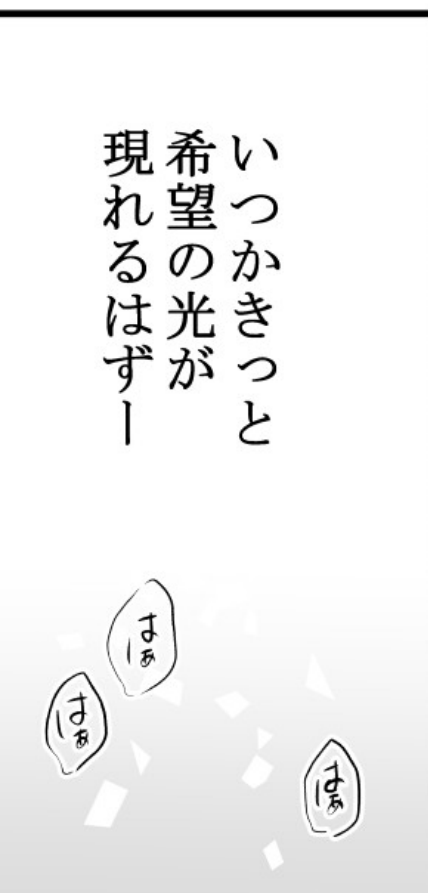 いつかきっと
希望の光が
現れるはずー
はぁ
はぁ
はぁ